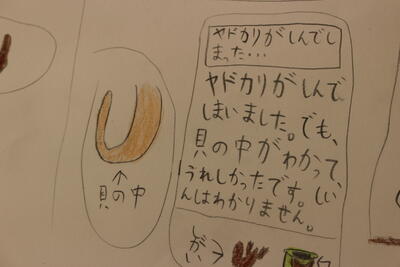 ヤドカリがしんでし
まった・・・
ヤドカリがしんで
しまいました。でも、
貝の中がわかって、
うれしかったです。しい
んはわかりません。
しがい→
↑
貝の中